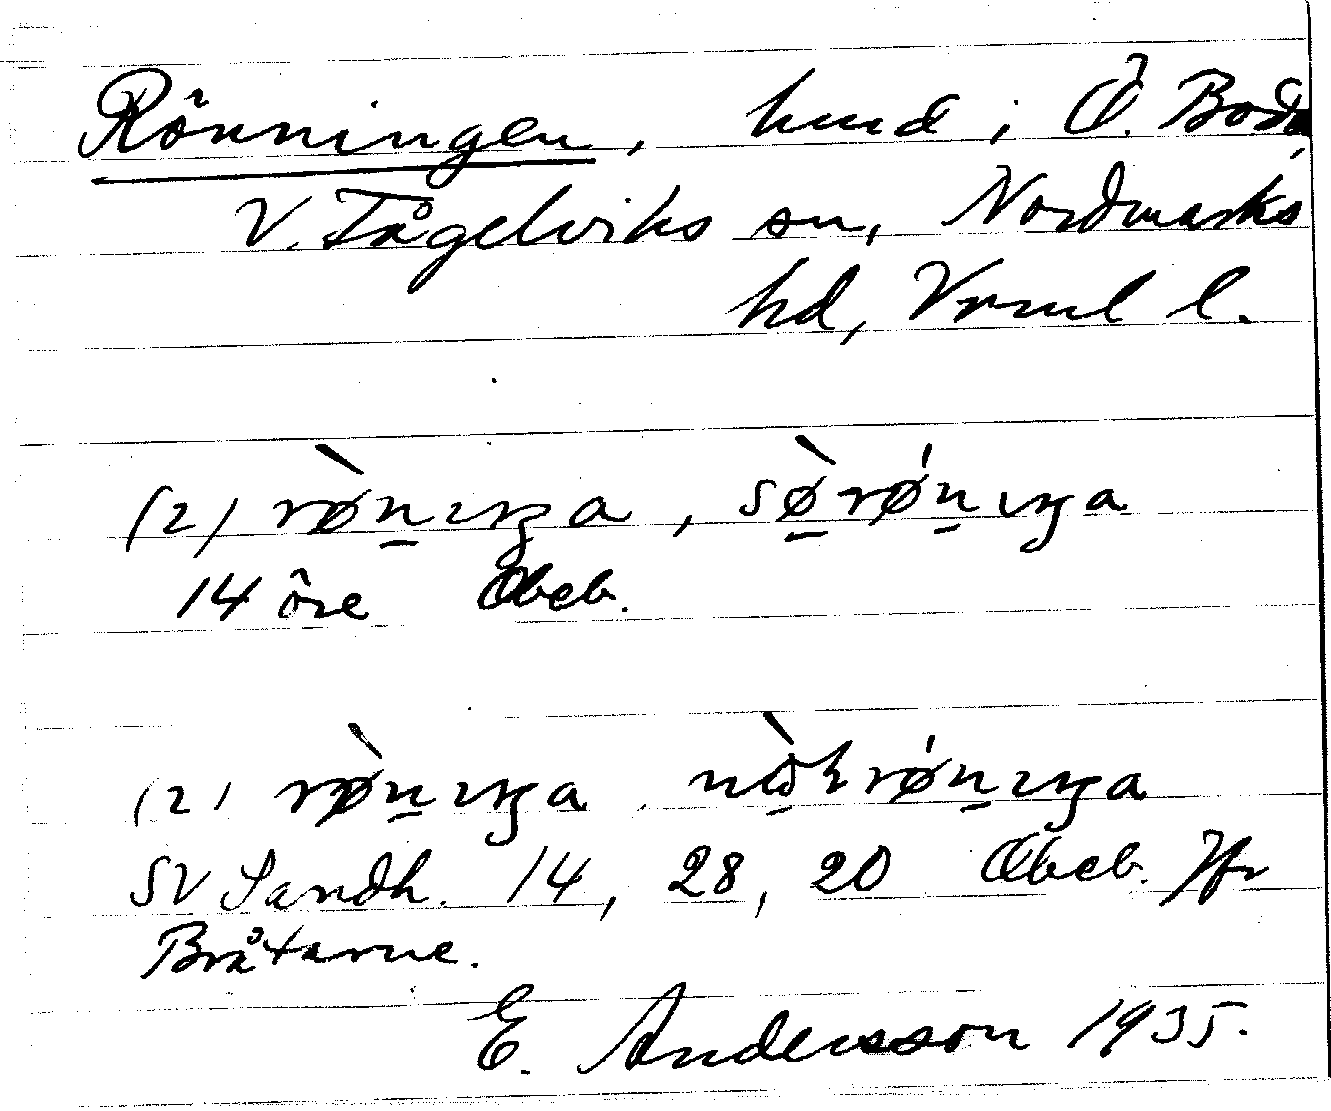 Rönningen, hmd i Ö. Boda,
V. Fågelviks sn, Nordmarks
hd, Vrml l.
(2) rø̀n̲ıŋa, sø̲̀rǿn̲ıŋa
14 öre Obeb.
(2) rø̀n̲ıŋa nòkrǿn̲ıŋa
SV Sandh. 14, 28, 20 Obeb. Jfr
Bråtarne.
E. Andersson 1935.